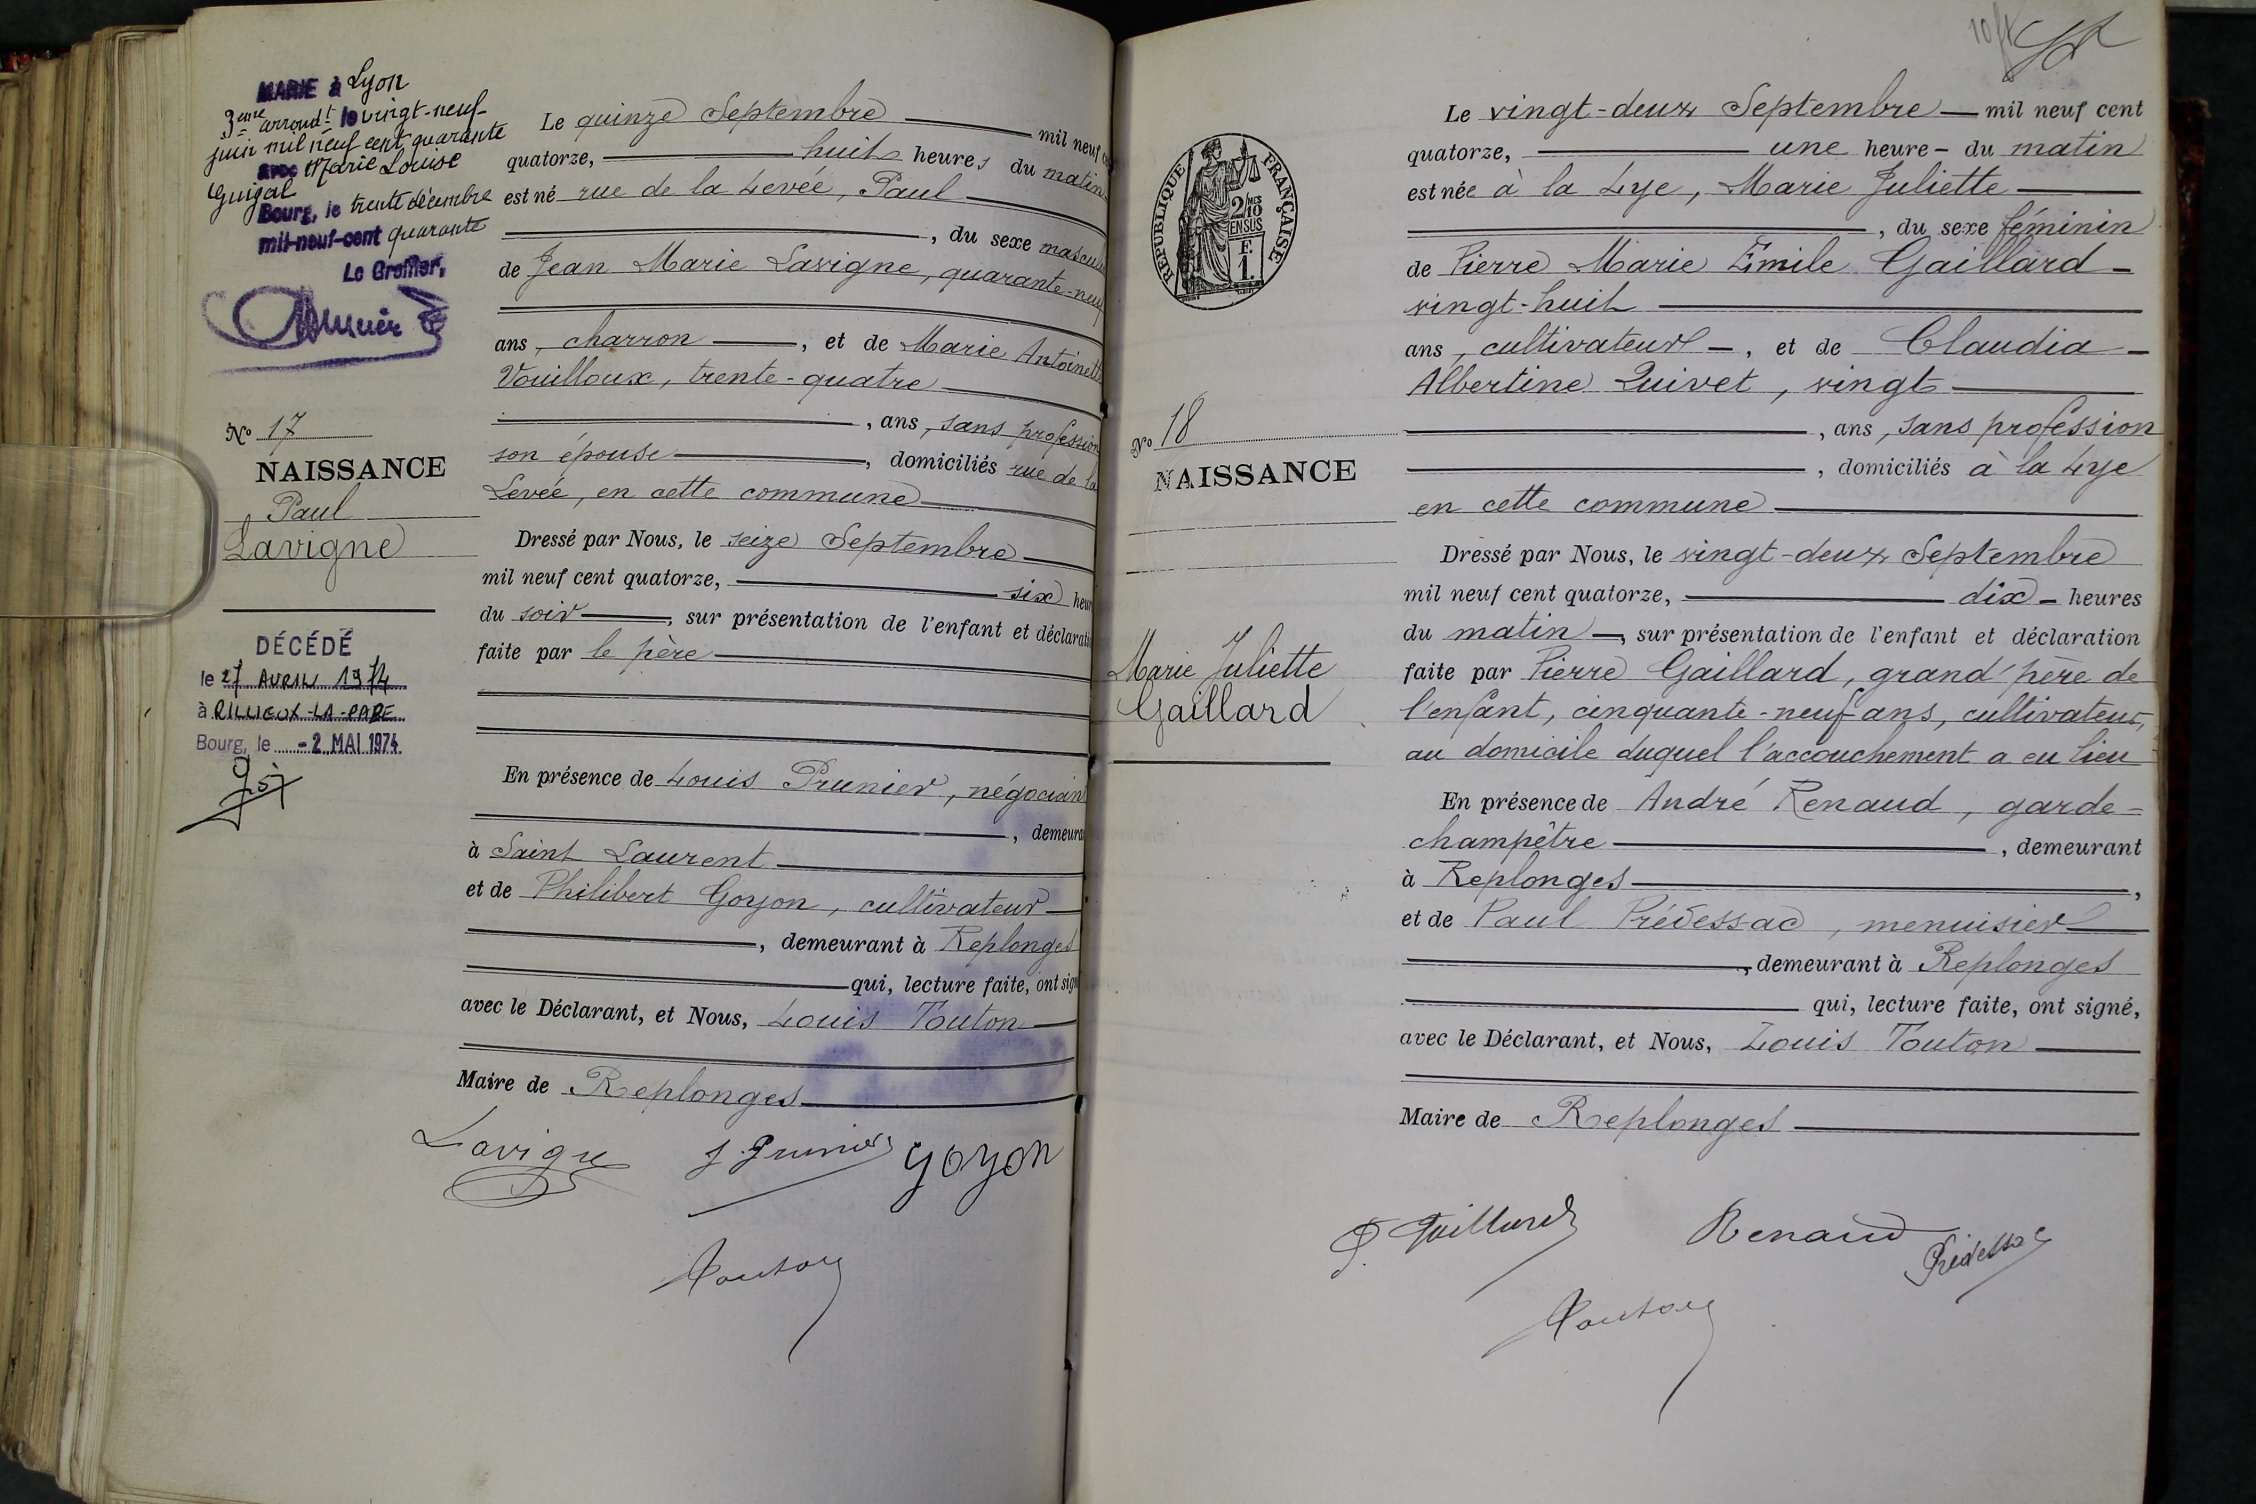 MARIE à Lyon
3ème arrondt le vingt-neuf
juin mil neuf cent quarante
avec Marie Louise
Guigal
Bourg, le trente décembre
mil-neuf-cent quarante
Le Greffier,
No 17
NAISSANCE
Paul
Lavigne
DÉCÉDÉ
le 27 AVRIL 1974
à RILLIEUX-LA-PAPE
Bourg, le -2 MAI 1974
Le quinze Septembre mil neuf cen
quatorze, huit heures du matin
est né rue de la Levée, Paul
, du sexe mascu
de Jean Marie Lavigne, quarante-neuf
ans, charron, et de Marie Antoinette
Vouilloux, trente-quatre
, ans, sans profession
son épouse, domiciliés rue de la
Levée, en cette commune
Dressé par Nous, le seize Septembre
mil neuf cent quatorze, six heur
du soir, sur présentation de l'enfant et déclarati
faite par le père
En présence de Louis Prunier, négocian
, demeura
à Saint Laurent
et de Philibert Goyon, cultivateur
, demeurant à Replonges
qui, lecture faite, ont sign
avec le Déclarant, et Nous, Louis Touton
Maire de Replonges
Lavigne J Prunier Goyon
Touton
10
RÉPUBLIQUE FRANÇAISE
2/10 MES
EN SUS
F.
1.
No 18
NAISSANCE
Marie Juliette
Gaillard
Le vingt-deux Septembre mil neuf cent
quatorze, une heure - du matin
est née à la Lye, Marie Juliette
, du sexe féminin
de Pierre Marie Émile Gaillard -
vingt-huit
ans, cultivateur -, et de Claudia -
Albertine Quivet, vingt
, ans, sans profession
, domiciliés à la Lye
en cette commune
Dressé par Nous, le vingt-deux Septembre
mil neuf cent quatorze, dix - heures
du matin -, sur présentation de l'enfant et déclaration
faite par Pierre Gaillard, grand'père de
l'enfant, cinquante-neuf ans, cultivateur,
au domicile duquel l'accouchement a eu lieu
En présence de André Renaud, garde=
champêtre, demeurant
à Replonges,
et de Paul Prédessac, menuisier
, demeurant à Replonges
qui, lecture faite, ont signé,
avec le Déclarant, et Nous, Louis Touton
Maire de Replonges
P. Gaillard Renaud Prédessac
Touton